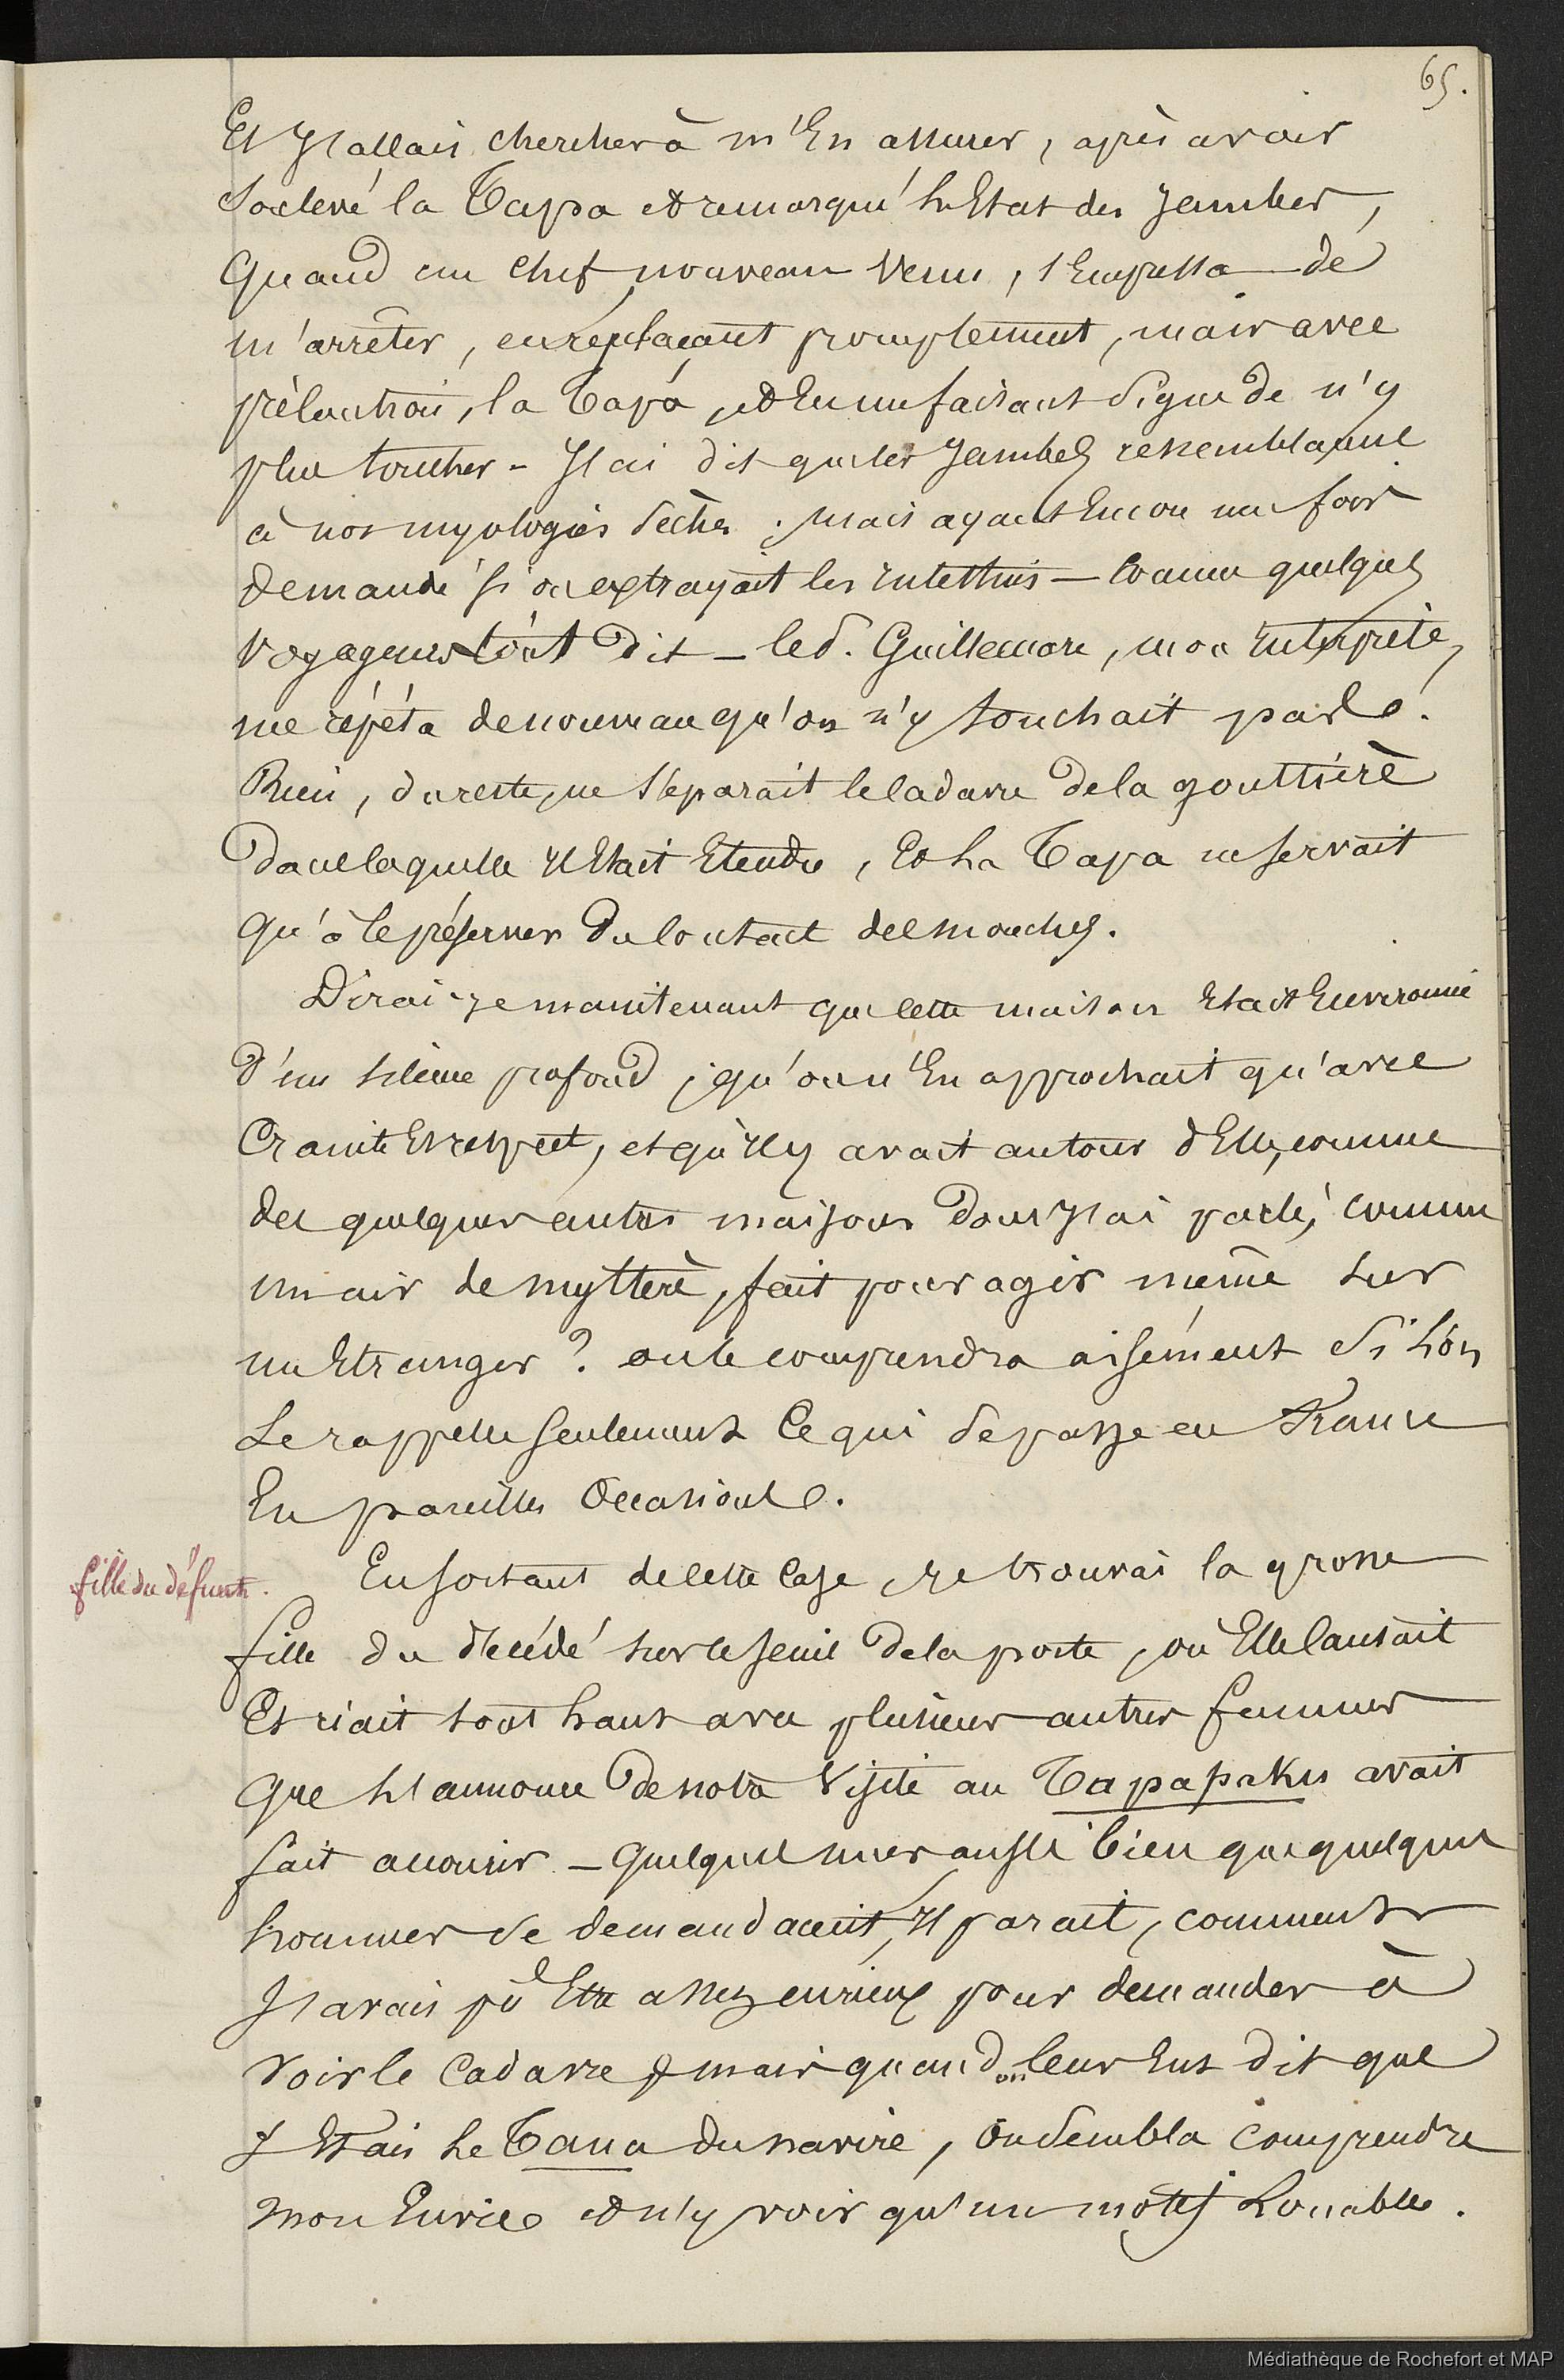 65.
Et j'allais chercher à m'en assurer, après avoir
soulevé la Tapa et remarqué l'Etat des jambes,
quand un chef nouveau venu, s'empressa de
m'arrêter, en replaçant promptement, mais avec
précaution, la Tapa, et en me faisant signe de n'y
plus toucher - J'ai dit que les jambes ressemblaient
à nos myologies sèches ; mais ayant encore une fois
demandé si on extrayait les intestins — comme quelques
voyageurs l'ont dit — le S. Guillemard, mon interprète,
me répéta de nouveau qu'on n'y touchait pas.
Rien, du reste, ne séparait le cadavre de la gouttière
dans laquelle il était étendu, et la Tapa ne servait
qu'à le préserver du contact des mouches.
Dirai-je maintenant que cette maison était environnée
d'un silence profond ; qu'on n'en approchait qu'avec
crainte et respect, et qu'il y avait autour d'elle, comme
des quelques autres maisons dont j'ai parlé, comme
un air de mystère, fait pour agir même sur
un étranger ? on le comprendra aisément si l'on
se rappelle seulement ce qui se passe en France
en pareilles occasions.
fille du défunt.
En sortant de cette case, je trouvai la grosse
fille du décédé sur le seuil de la porte, où elle causait
et riait tout haut avec plusieurs autres femmes
que l'annonce de notre visite au Tapapaku avait
fait accourir — quelques unes aussi bien que quelques
hommes se demandaient, il parait, comment
j'avais pû être assez curieux pour demander à
voir le cadavre ; mais quand on leur eut dit que
j'étais le Taua du navire, on sembla comprendre
mon envie et n'y voir qu'un motif louable.
Médiathèque de Rochefort et MAP